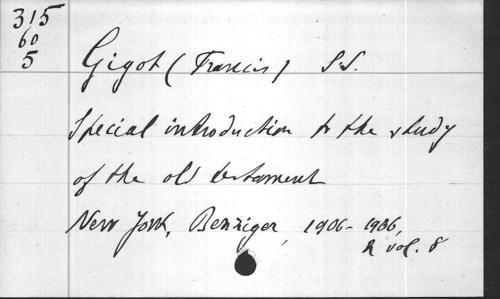 315
60
5
Gigot (Francis) S.S.
Special introduction to the study
of the old testament
New York, Benziger, 1906-1906,
2 vol. 8